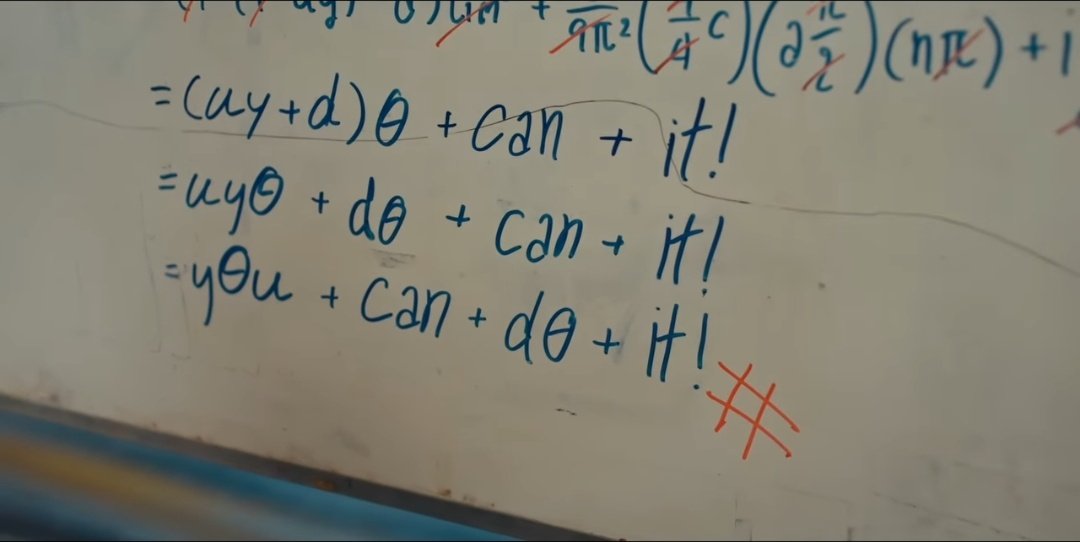 + 9π² (1/4 c)(∂π/2)(nπ) + 1
=(uy+d)θ + c∂n + it!
=uyθ + dθ + c∂n + it!
=yθu + c∂n + dθ + it!